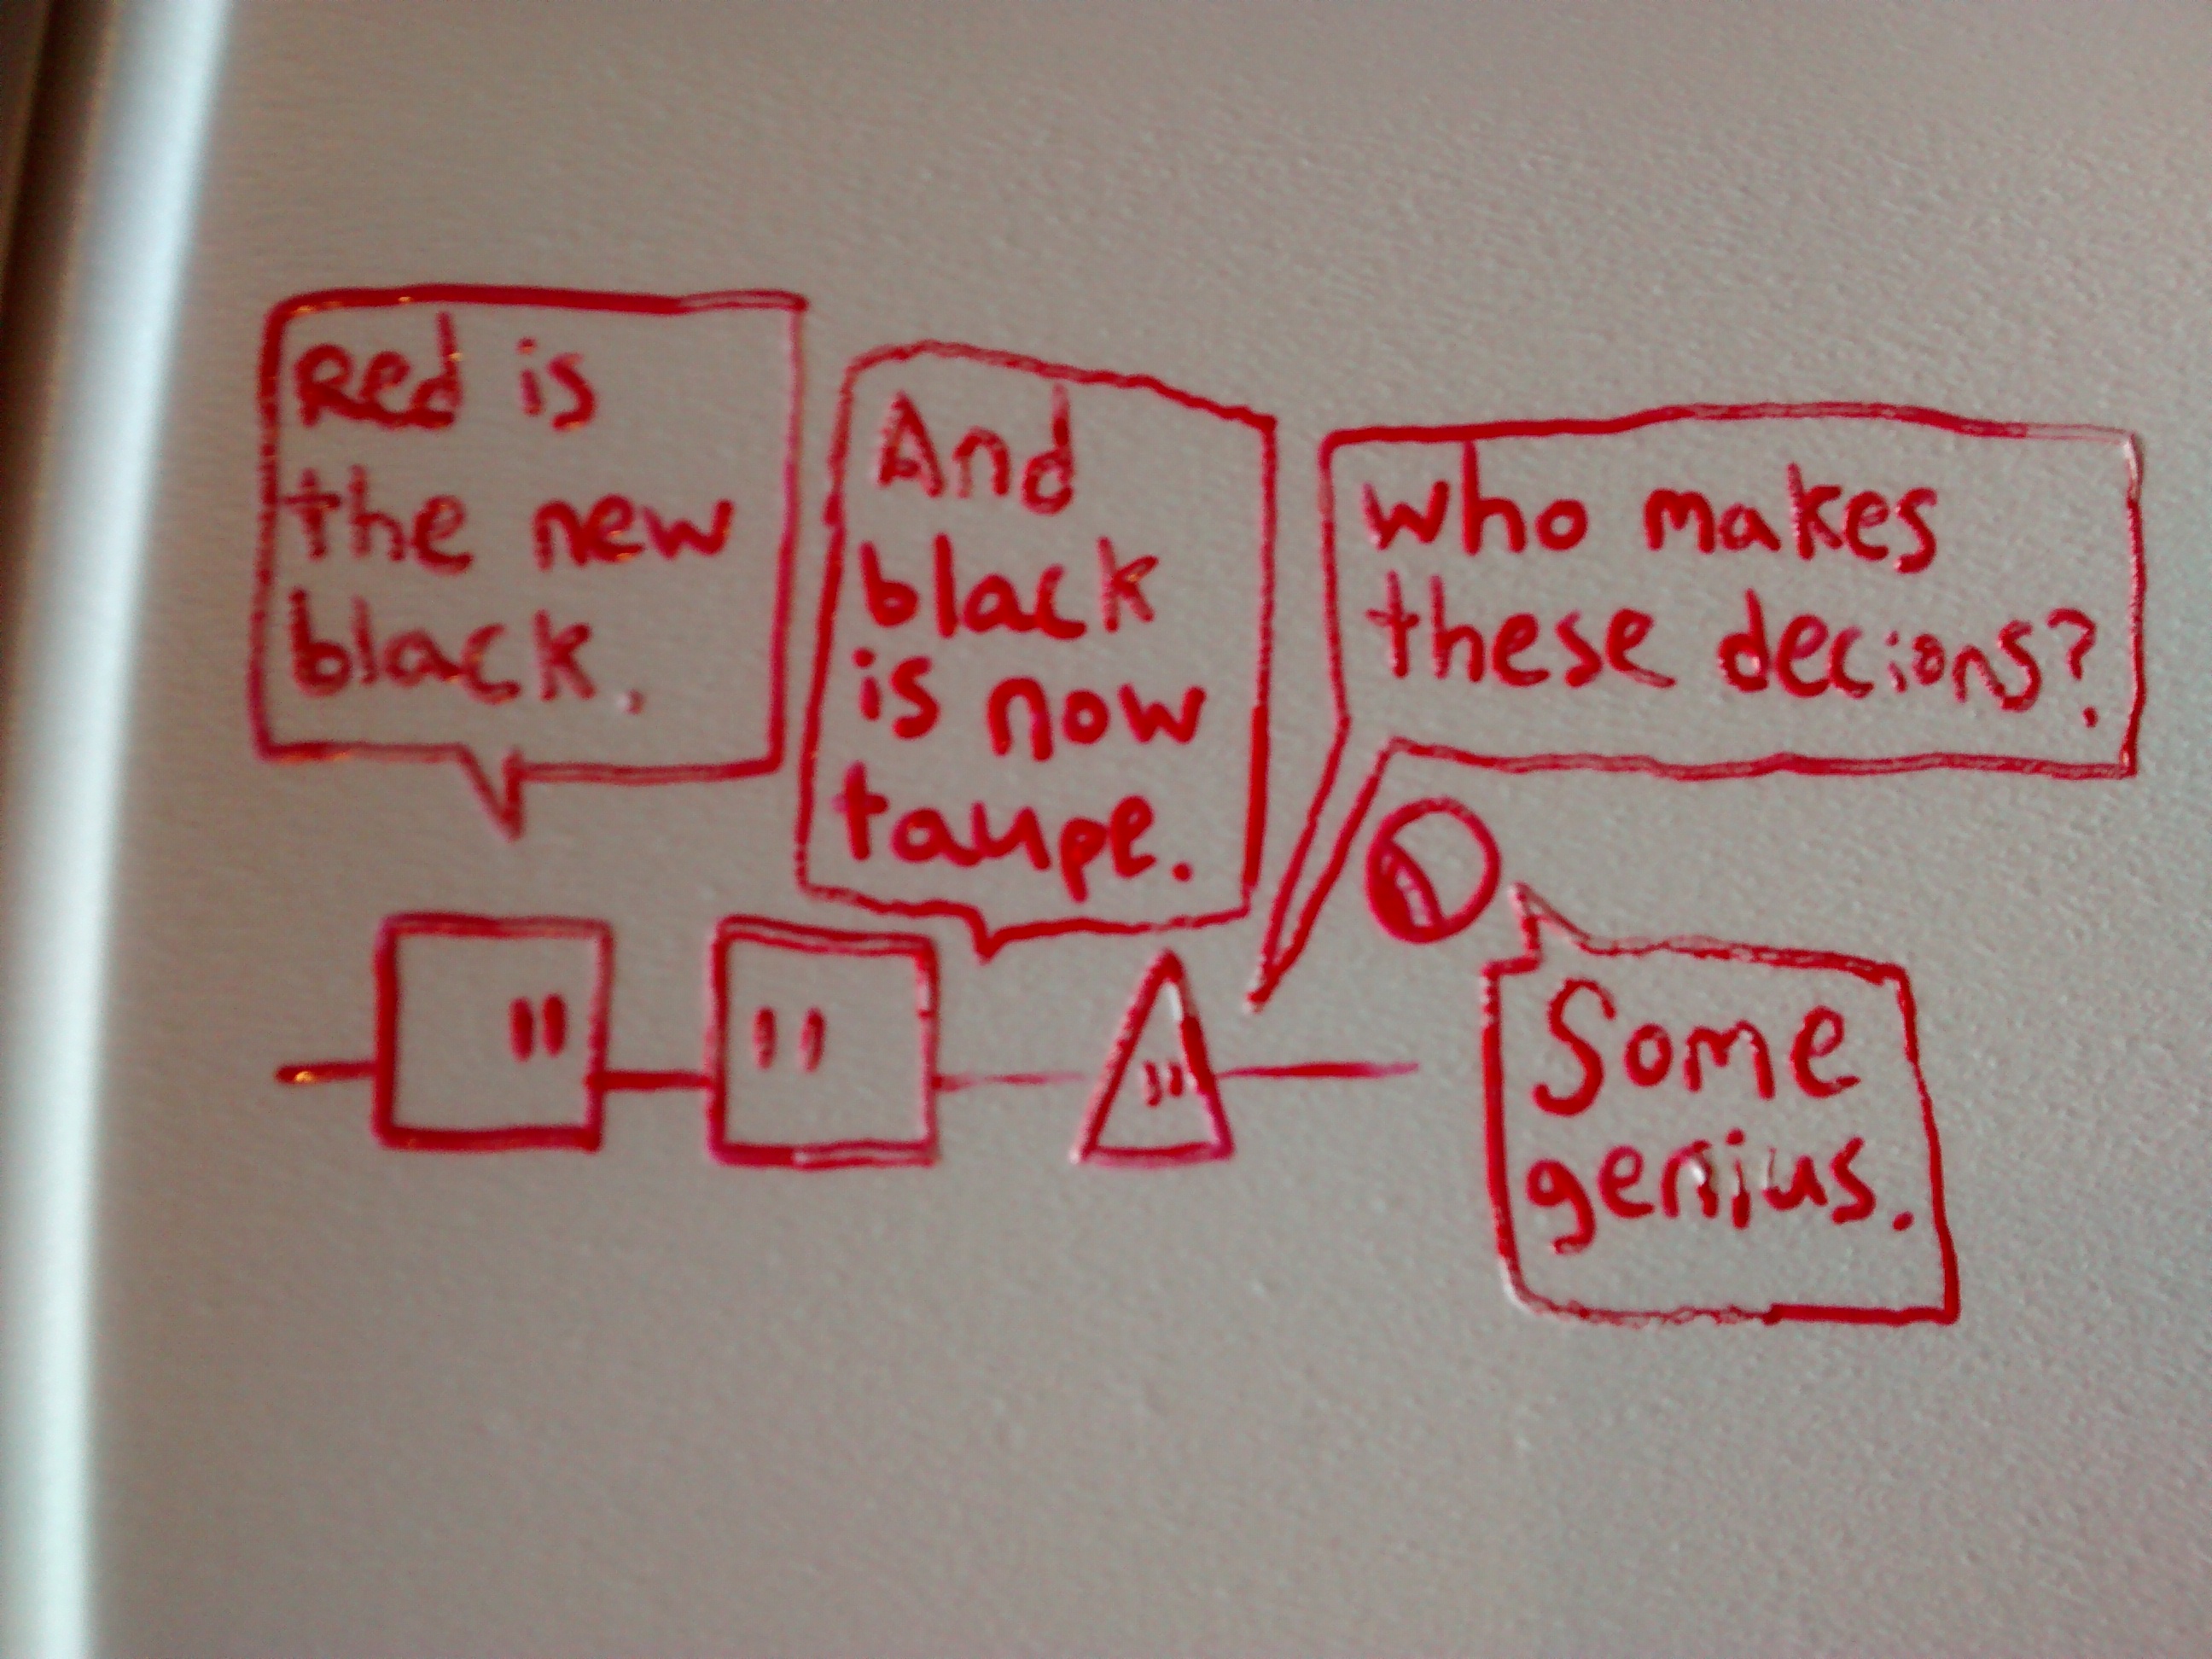 Red is
the new
black.
And
black
is now
taupe.
who makes
these decions?
Some
genius.